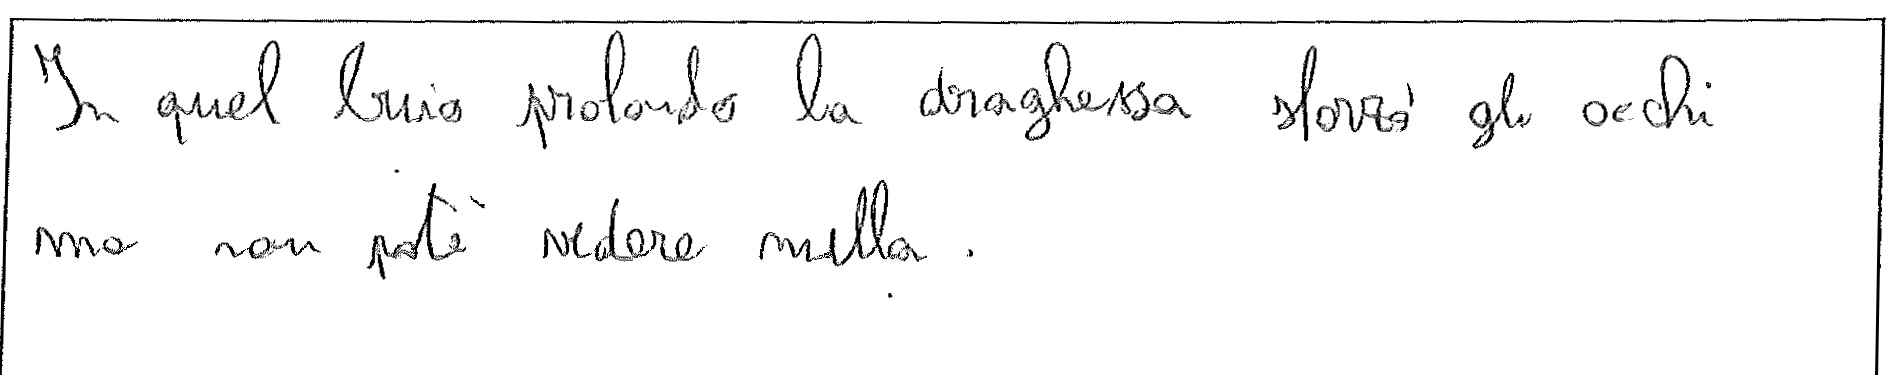 In quel buio profondo la draghessa sforzò gli occhi
ma non potè vedere nulla.